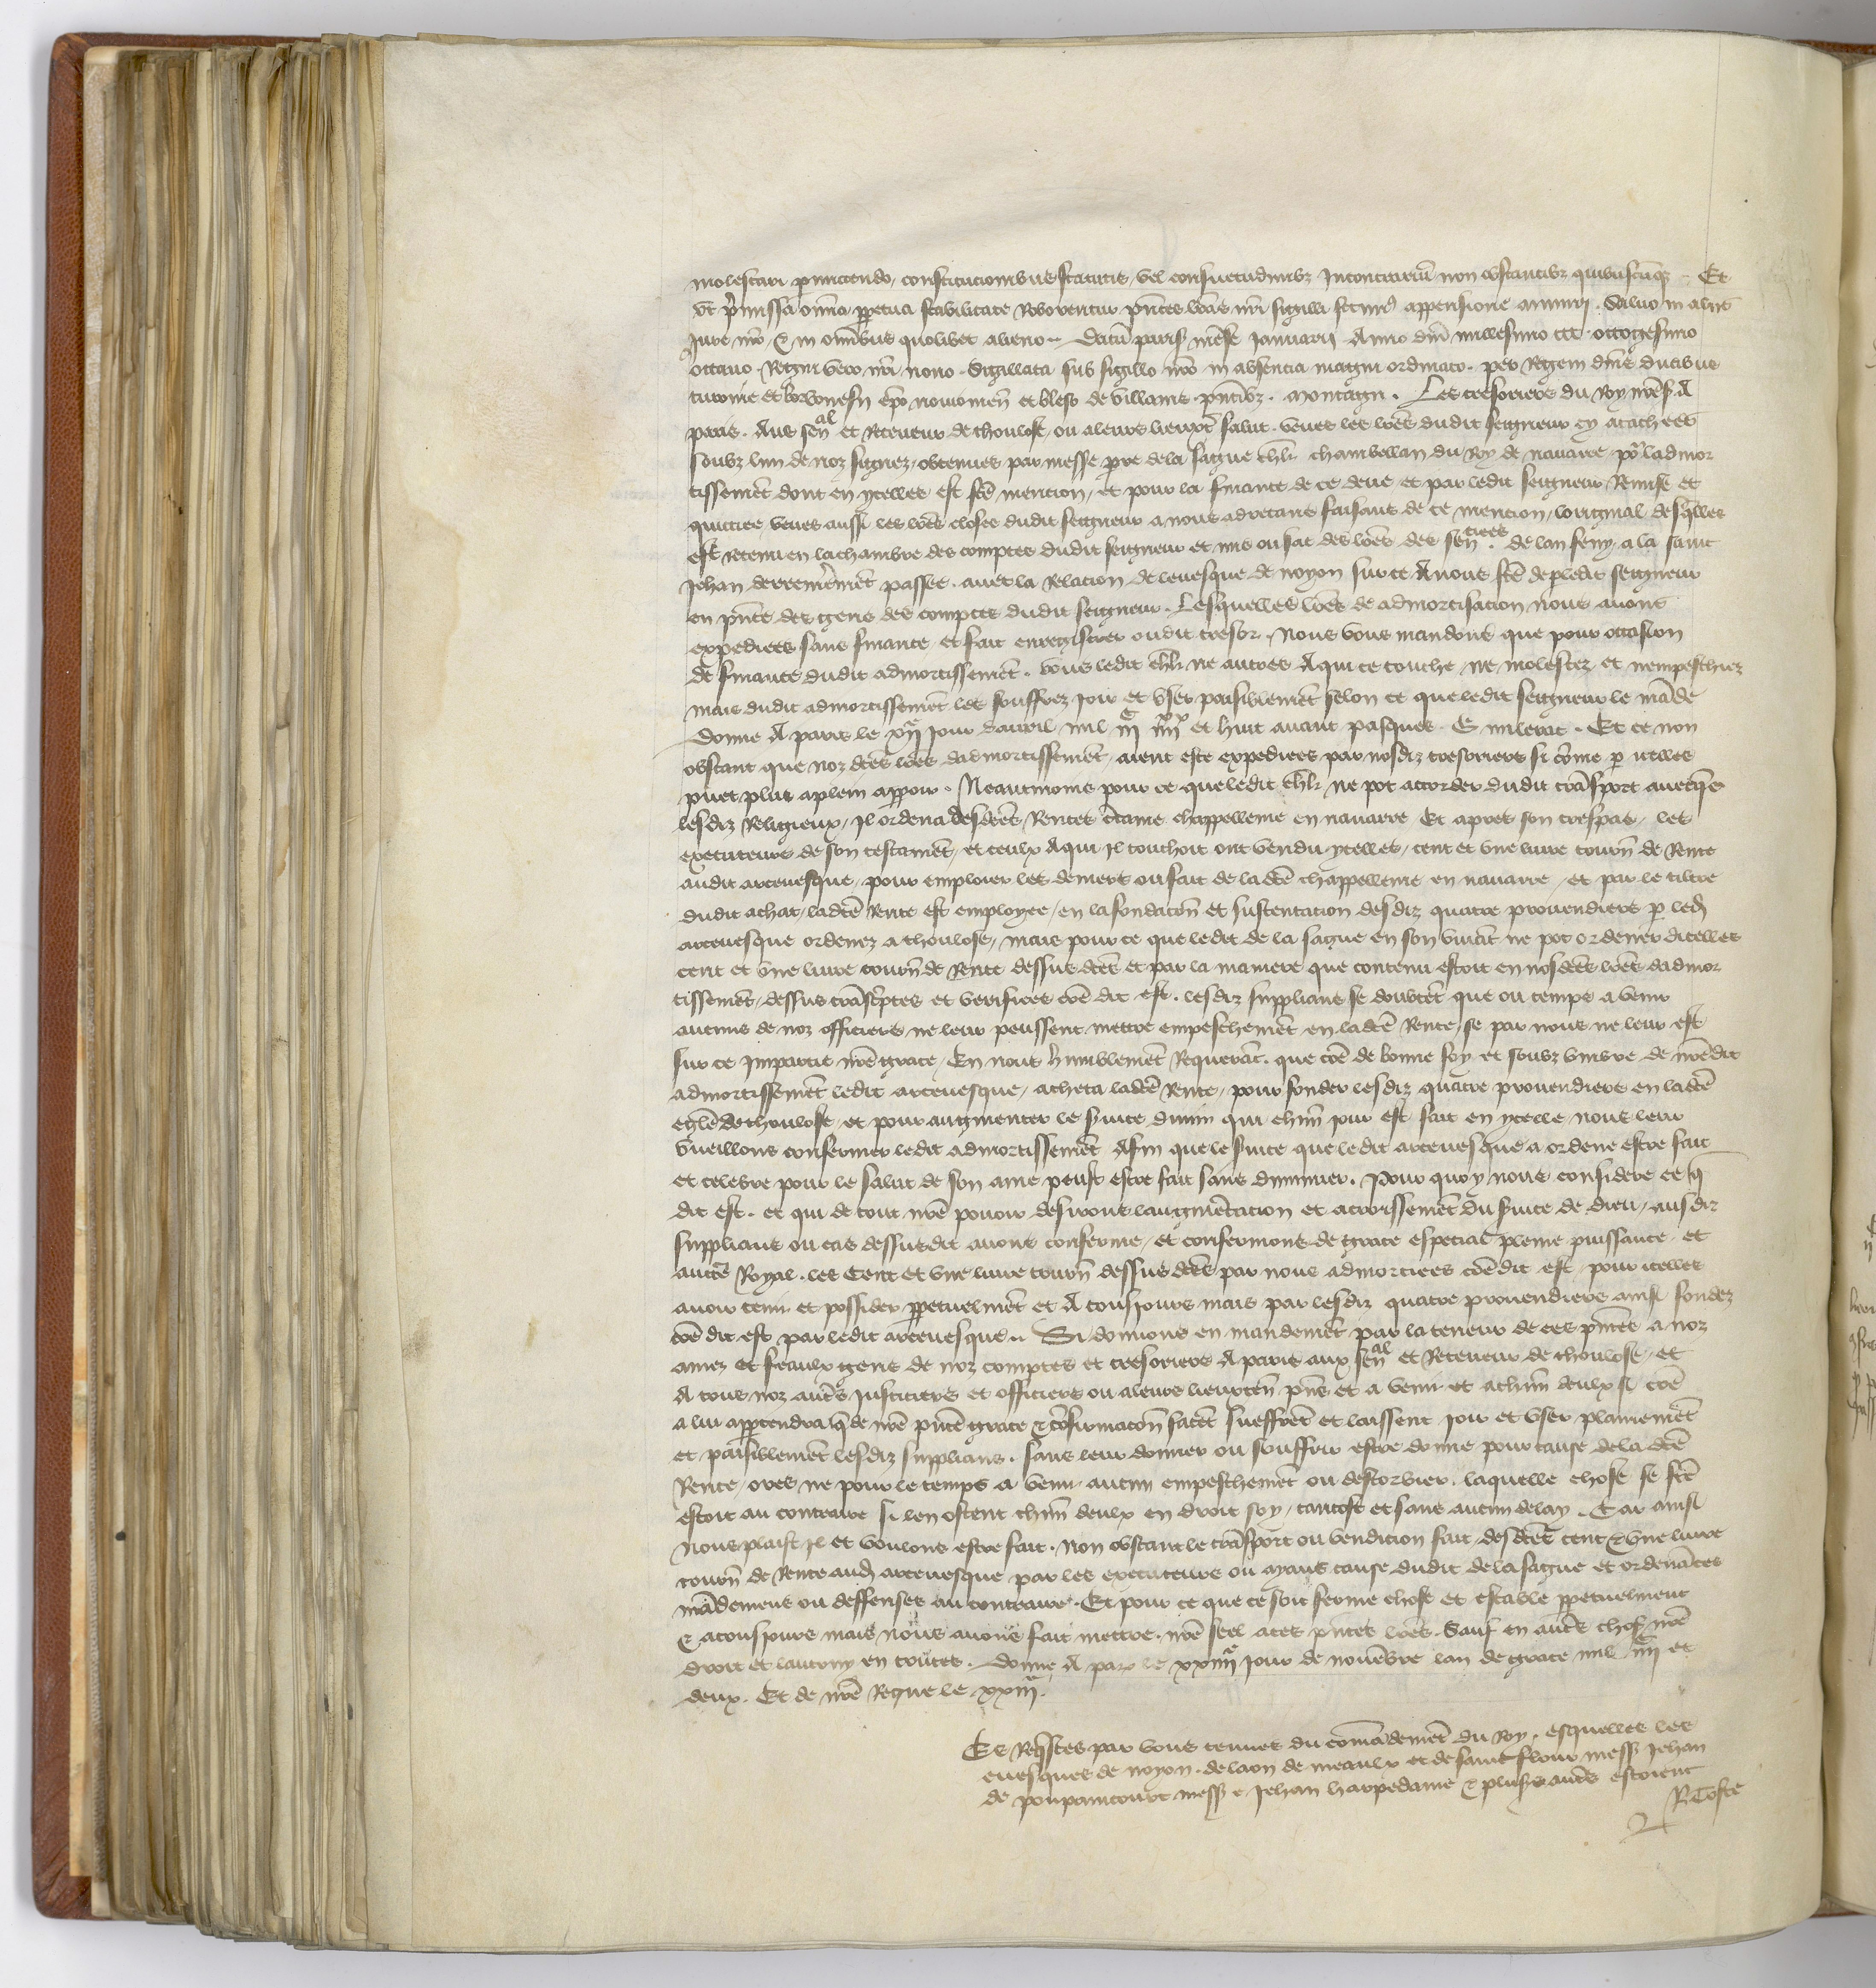 molestari permittendo, constitucionibus statutis, vel consuetudinibz Incontrariũ non obstantibz quibuscũqz. Et
vt p̃missa om̃ia ꝑpetua stabilitate Roborentur pñtes lr̃as nr̃i sigilli fecim⁹ appensione muniri. Saluo in aliis
Jure nr̃o & in om̃ibus quolibet alieno. Datũ parisꝰ mẽse Januarij Anno dñi millesimo ccc. octogesimo
octauo. Regni vero nr̃i nono. Sigillata sub sigillo nr̃o in absencia magni ordinato. per Regem dñis ducibus
turonie et borbonesij ep̃o nouiomeñ et bleso de villanis. pñtibz. Montagu. Les tresoriers du Roy nr̃e sꝰ A
paris. Aus señal et Receueur de thoulose, ou a leurs lieuxtẽ salut. veues les lr̃es dudit seigneur cy atachees
soubz lun de noz signez, obtenues par messe pierre de la sague chlr̃ chambellan du Roy de nauarre. poʳ ladmor
tissemẽt dont en ycelles est fc̃e mention, et pour la finance de ce deue et par ledit seigneur Remise et
quittee veues aussi les lr̃es closes dudit seigneur a nous adrecans faisans de ce mention, loriginal desq̃lles
est Retenu en la chambre des comptes dudit seigneur et mis ou sac des lr̃es des señciees. de lan feny a la saint
Jehan derrenieremẽt passee. auec la Relacion de leuesque de noyon sur ce A nous fc̃e de ꝑ ledit seigneur
en pñce des gens des comptes dudit seigneur. Lesquelles lr̃es de admortisation nous auons
expediees sans finance et fait enregistrer oudit tresor. Nous vous mandons que pour occasion
de finance dudit admortissemẽt. vous ledit chlr̃ ne autres A qui ce touche ne molestez et nempeschiez
mais dudit admortissemẽt les souffrez Joir et vser paisiblemẽt selon ce que ledit seigneur le mãde
Donne A paris le xijᵉ Jour dauril mil iijᶜ iiijˣˣ et huit auant pasques. Et ce non
obstant que noz dc̃es lr̃es dadmortissemẽt, aient este expediees par nosdiz tresoriers si cõme ꝑ icelles
puet plus aplein apparoir. Neantmoins pour ce que ledit chlr̃ ne pot accorder dudit trãsport auecq̃s
lesdiz Religieux, Il ordena desdc̃es Rentes c̃taine chappellenie en nauarre Et apres son trespas, les
executeurs de son testamẽt, et ceulx A qui Il touchoit ont vendu ycelles, cent et vne liure tourñ de Rente
audit arceuesque, pour emploier les deniers ou fait de ladc̃e chappellenie en nauarre, et par le tiltre
dudit achat, ladc̃e Rente est employee, en la fondacoñ et sustentacion desdiz quatre prouendiers ꝑ led̃
arceuesque ordenez a thoulose, mais pour ce que ledit de la sague en son viuãt ne pot ordener dicelles
cent et vne liure tourñ de Rente dessus dc̃es et par la maniere que contenu estoit en nosdc̃es lr̃es dadmor
tissemẽt, dessus trãscriptes et verifiees cõe dit est. lesdiz supplians se doubtẽt que ou temps a venir
aucuns de noz officiers ne leur peussent mettre empeschemẽt en ladc̃e Rente, se par nous ne leur est
sur ce Impartie nr̃e grace, En nous h̃umblemẽt Requerãt. que cõe de bonne foy et soubz vmbre de nr̃edit
admortissemẽt ledit arceuesque, acheta ladc̃e Rente, pour fonder lesdiz quatre prouendiers en ladc̃e
eglĩe de thoulose, et pour augmenter le s̃uice diuin qui chũn Jour est fait en ycelle nous leur
vueillons confermer ledit admortissemẽt Afin que le s̃uice que ledit arceuesque a ordene estre fait
et celebre pour le salut de son ame peust estre fait sans diminuer. Pour quoy nous considere ce q̃
dit est. et qui de tout nr̃e pouoir desirons laugmẽtacion et accroissemẽt du s̃uice de dieu, ausdiz
supplians ou cas dessusdit auons conferme, et confermons de grace especial pleine puissance, et
auctẽ Royal. les Cent et vne liure tourñ dessus dc̃es par nous admorties cõe dit est. pour icelles
auoir tenir et possider ꝑpetuelmẽt et A tousiours mais par lesdiz quatre prouendiers ainsi fondez
cõe dit est par ledit arceuesque. Si donnons en mandemẽt par la teneur de ces pñtes a noz
amez et feaulx gens de noz comptes et tresoriers A paris aux señal et Receueur de thoulose, et
A tous noz aut̃s Justiciers et officiers ou a leurs lieuxteñ pñs et a venir et a chũn deulx si cõe
a lui appartendra q̃ de nr̃e pñte grace & cõfirmacoñ facẽt sueffrẽt et laissent Joir et vser plainemẽt
et paisiblemẽt lesdiz supplians. sans leur donner ou souffrir estre donne pour cause de la dc̃e
Rente, ores ne pour le temps a venir aucun empeschemẽt ou destorbier. laquelle chose se fc̃e
estoit au contraire si len ostent chũn deulx en droit soy, tantost et sans aucun delay. Car ainsi
Nous plaist Il et voulons estre fait. Non obstant le trãsport ou vendicion fait des dc̃es cent & vne liure
tourñ de Rente aud̃ arceuesque par les executeurs ou ayans cause dudit de la sague et ordenãces
mãdemens ou deffenses au contraire. Et pour ce que ce soit ferme chose et estable ꝑpetuelment
& a tousiours mais nous auons fait mettre. nr̃e seel a ces pñtes lr̃es. Sauf en aut̃s choses nr̃e
droit et lautruy en toutes. Donne A parꝰ le xxiiijᵉ Jour de nouẽbre lan de grace mil iiijᶜ et
deux. Et de nr̃e Regne le xxiijᵉ.
Es Req̃stes par vous tenues du cõmãdemẽt du Roy. esquelles les
euesques de noyon. de laon de meaulx et de saint flour messꝰ Jehan
de poupaincourt messꝰ Jehan harpedanne & plusꝰs aut̃s estoient
R Coste